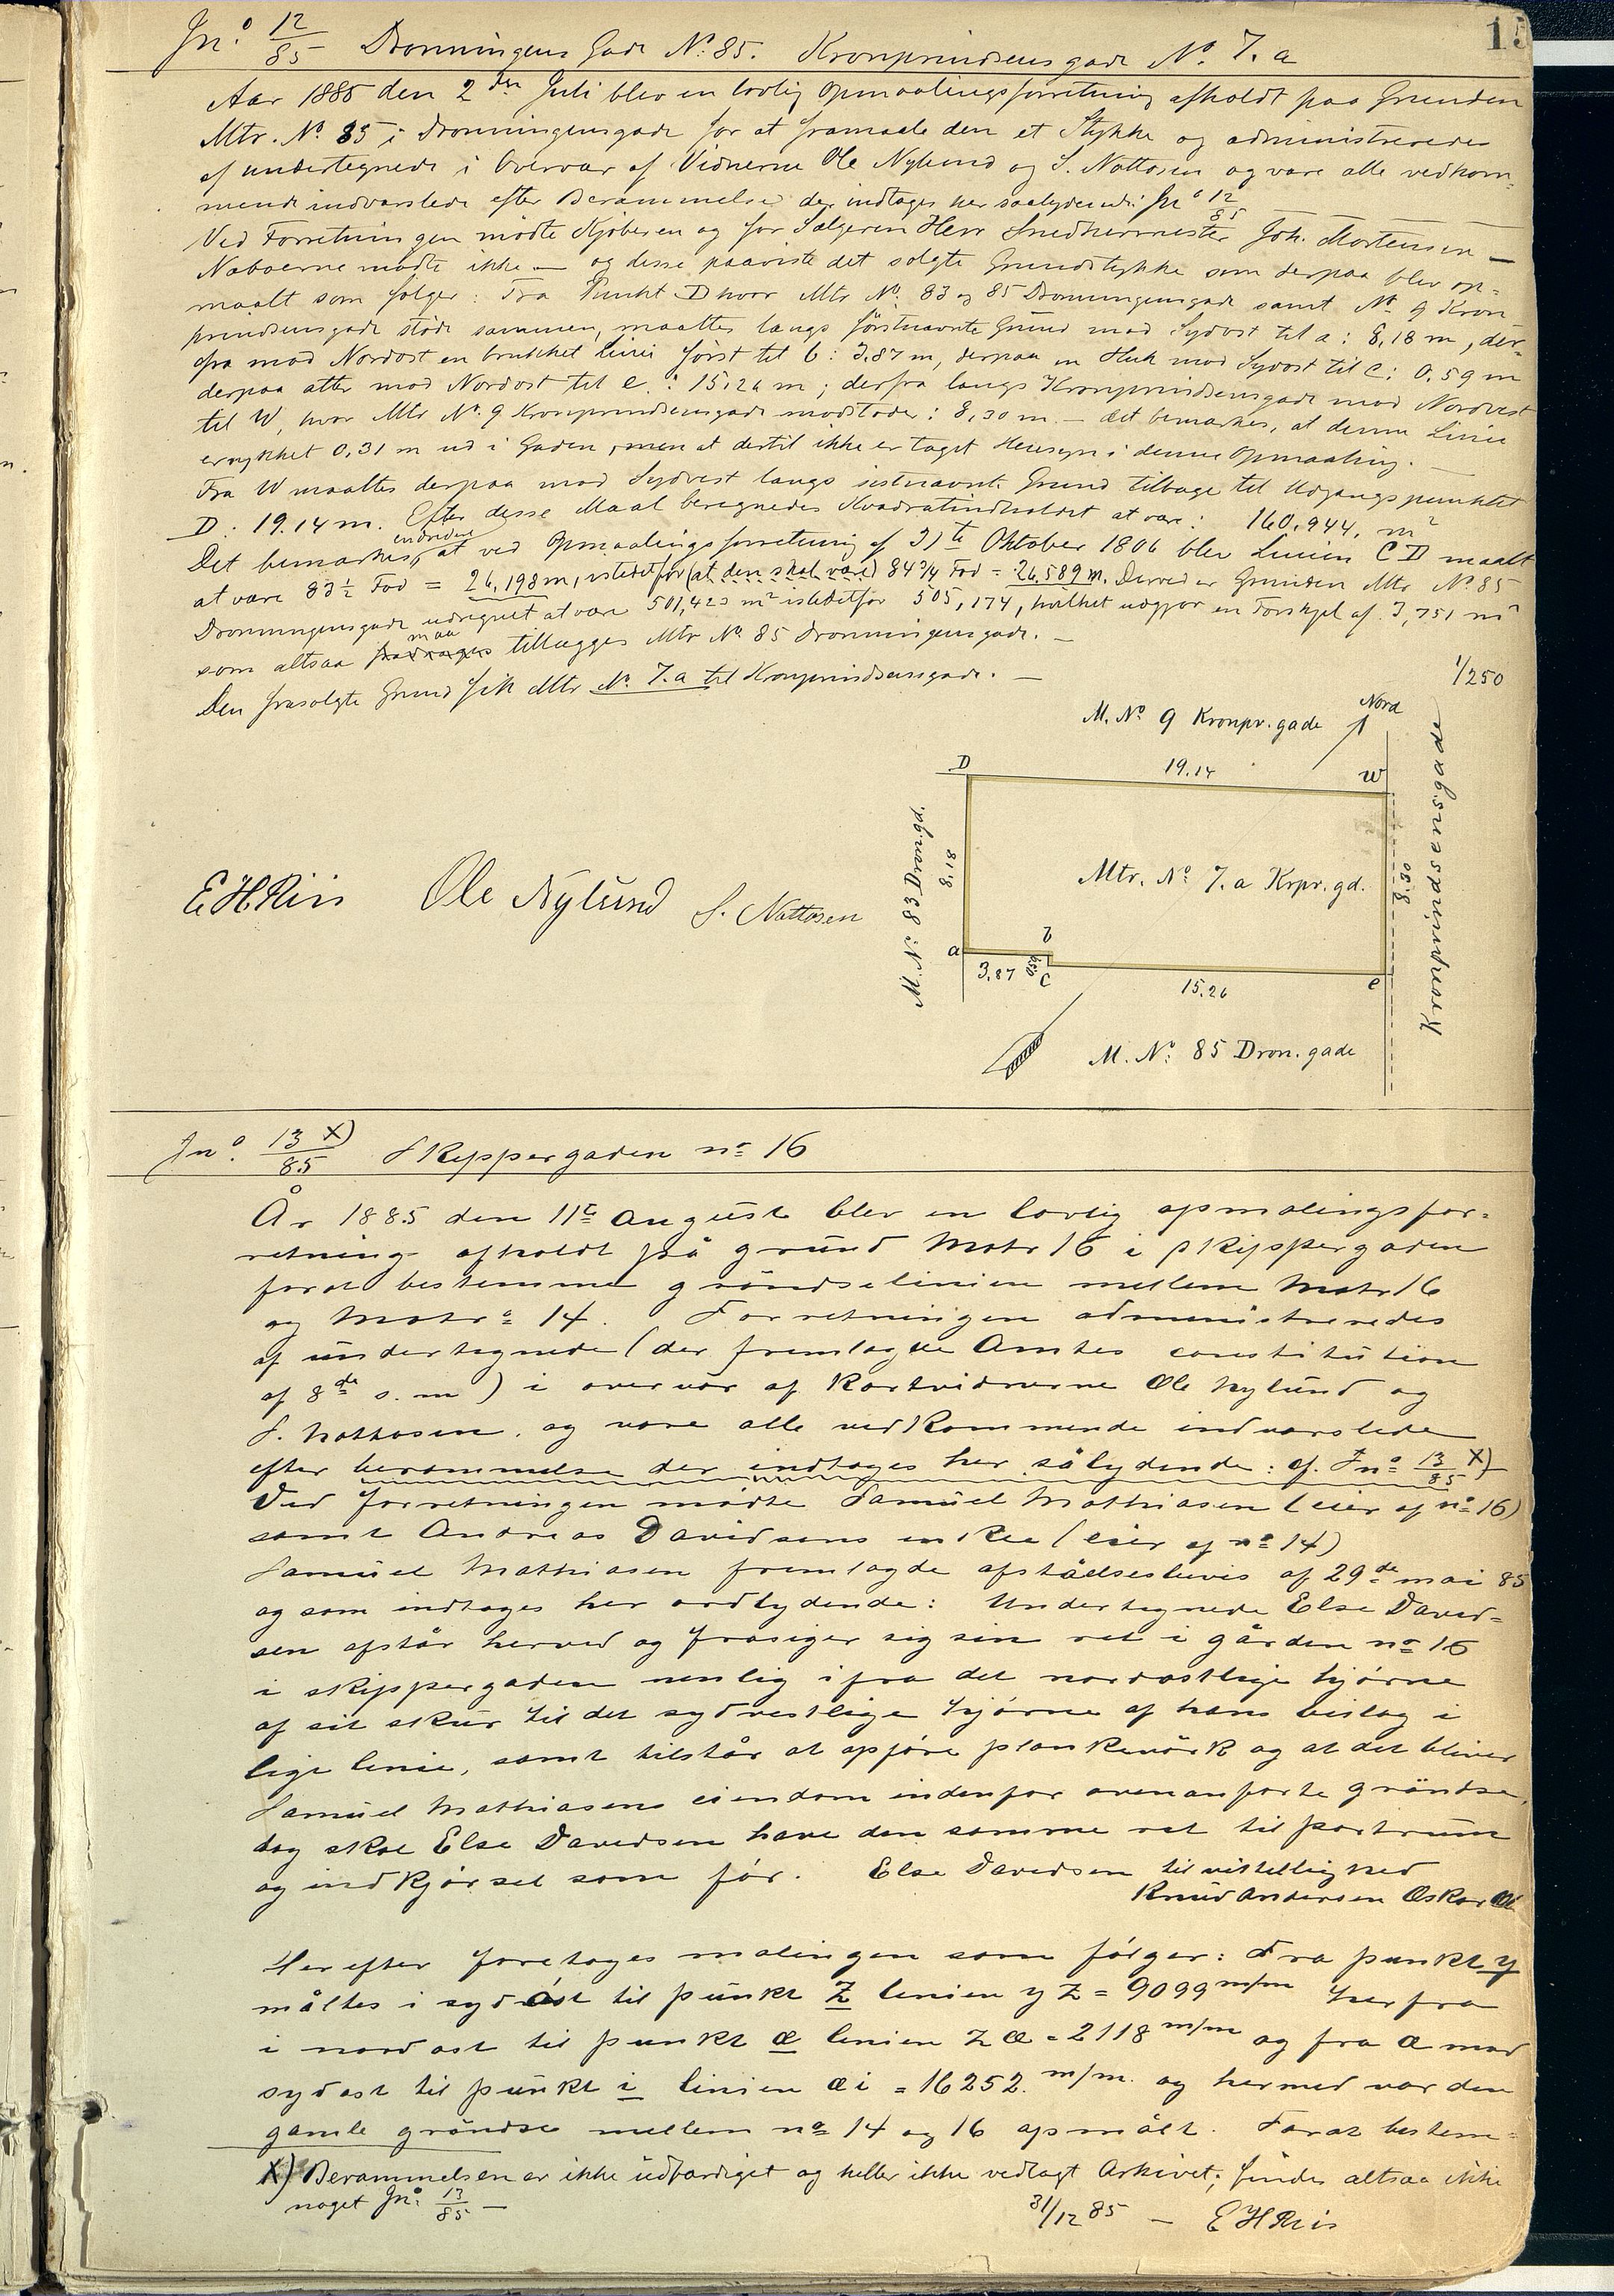 15
Jn.o 12/85 Dronningens Gade No: 85. Kronprindsensgade No. 7.a
Aar 1885 den 2den Juli blev en lovlig Opmaalingsforretning afholdt paa Grunden
Mtr. No. 85 i Dronningensgade for at framaale den et Stykke og administreredes
af undertegnede i Overvær af Vidnerne Ole Nylund og S. Nottosen og vare alle vedkom=
mende indvarslede efter Berammelse der indtages her saalydende: Jno 12/85
Ved Forretningen mødte Kjøberen og for Sælgeren Herr Snedkermester Joh. Mortensen —
Naboerne mødte ikke — og disse paaviste det solgte Grundstykke som derpaa blev op=
maalt som følger: Fra Punkt D hvor Mtr No. 83 og 85 Dronningensgade samt No. 9 Kron
prindsensgade støde sammen, maaltes langs førstnævnte Grund mod Sydost til a: 8,18 m, der=
fra mod Nordost en brukket Linie først til b: 3,87 m, derpaa en Huk mod Sydost til C: 0,59 m
derpaa atter mod Nordost til e: 15,26 m; derfra langs Kronprindsensgade mod Nordvest
til W, hvor Mtr No. 9 Kronprindsensgade modstøder: 8,30 m. — det bemærkes, at denne Linie
er rykket 0,31 m ud i Gaden, men at dertil ikke er taget Hensyn i denne Opmaaling. —
Fra W maaltes derpaa mod Sydvest langs sistnævnte Grund tilbage til Udgangspunktet
D: 19.14 m. Efter disse Maal beregnedes Kvadratindholdet at være: 160,944, m2
Det bemærkes endvidere, at ved Opmaalingsforretning af 31te Oktober 1806 blev Linien C D maalt
at være 83 1/2 Fod = 26,198 m, istedetfor (at den skal være) 84 3/4 Fod = 26,589 m. Derved er Grunden Mtr No 85
Dronningensgade udregnet at være 501,423 m2 istedetfor 505,174, hvilket udgjør en Forskjel af 3,751 m2
som altsaa fradrages maa tillægges Mtr No. 85 Dronningensgade. —
Den frasolgte Grund fik Mtr No. 7.a til Kronprindsensgade. —
1/250
M. No. 9 Kronpr.gade
Nord
D 19.14 W
M. No: 83 Dron.gd.
8,18
Mtr. No. 7.a Krpr.gd.
8.30
Kronprindsensgade
a b
3,87 0,59 C 15.26 e
M. No: 85 Dron.gade
E H Riis Ole Nylund S. Nottosen
Jno. 13/85 X) Skippergaden no 16
År 1885 den 11te august blev en lovlig opmålingsfor=
retning afholdt på grund Matr 16 i Skippergaden
forat bestemme gründselinien mellem Matr 16
og Matr no 14. Forretningen administreredes
af undertegnede (der fremlagde Amtets constitution
af 8de s.m) i overvær af Kartvidnerne Ole Nylund og
S. Nottosen. og vare alle vedkommende indvarslede
efter berammelse der indtages her sålydende: cf. Jno 13/85 X)
Ved forretningen mødte Samuel Mathiasen (eier af no 16)
samt Andreas Davidsens enke (eier af no 14)
Samuel Mathiasen fremlagde afståelsesbevis af 29de mai 85
og som indtages her ordlydende: Undertegnede Else David=
sen afstår herved og frasiger sig sin ret i gården no 16
i skippergaden nemlig ifra det nordostlige hjørne
af sit skur til det sydvestlige hjørne af hans bislag i
lige linie, samt tilstår at opføre plankeværk og at det bliver
Samuel Mathiasens eiendom indenfor ovenanførte gründse,
dog skal Else Davidsen have den samme ret til portrum
og indkjørsel som før. Else Davidsen til vitterlighed
Knud Andersen Oskar
Herefter foretoges målingen som følger: Fra punkt y
måltes i sydost til punkt Z linien y Z = 9099 m/m herfra
i nordost til punkt æ linien Z æ = 2118 m/m og fra æ mod
sydost til punkt i linien æ i = 16252. m/m. og hermed var den
gamle gründse mellem no 14 og 16 opmålt. Forat bestem=
X) Berammelsen er ikke udfærdiget og heller ikke vedlagt Arkivet; findes altsaa ikke
noget Jno: 13/85 —
31/12 85 — E H Riis